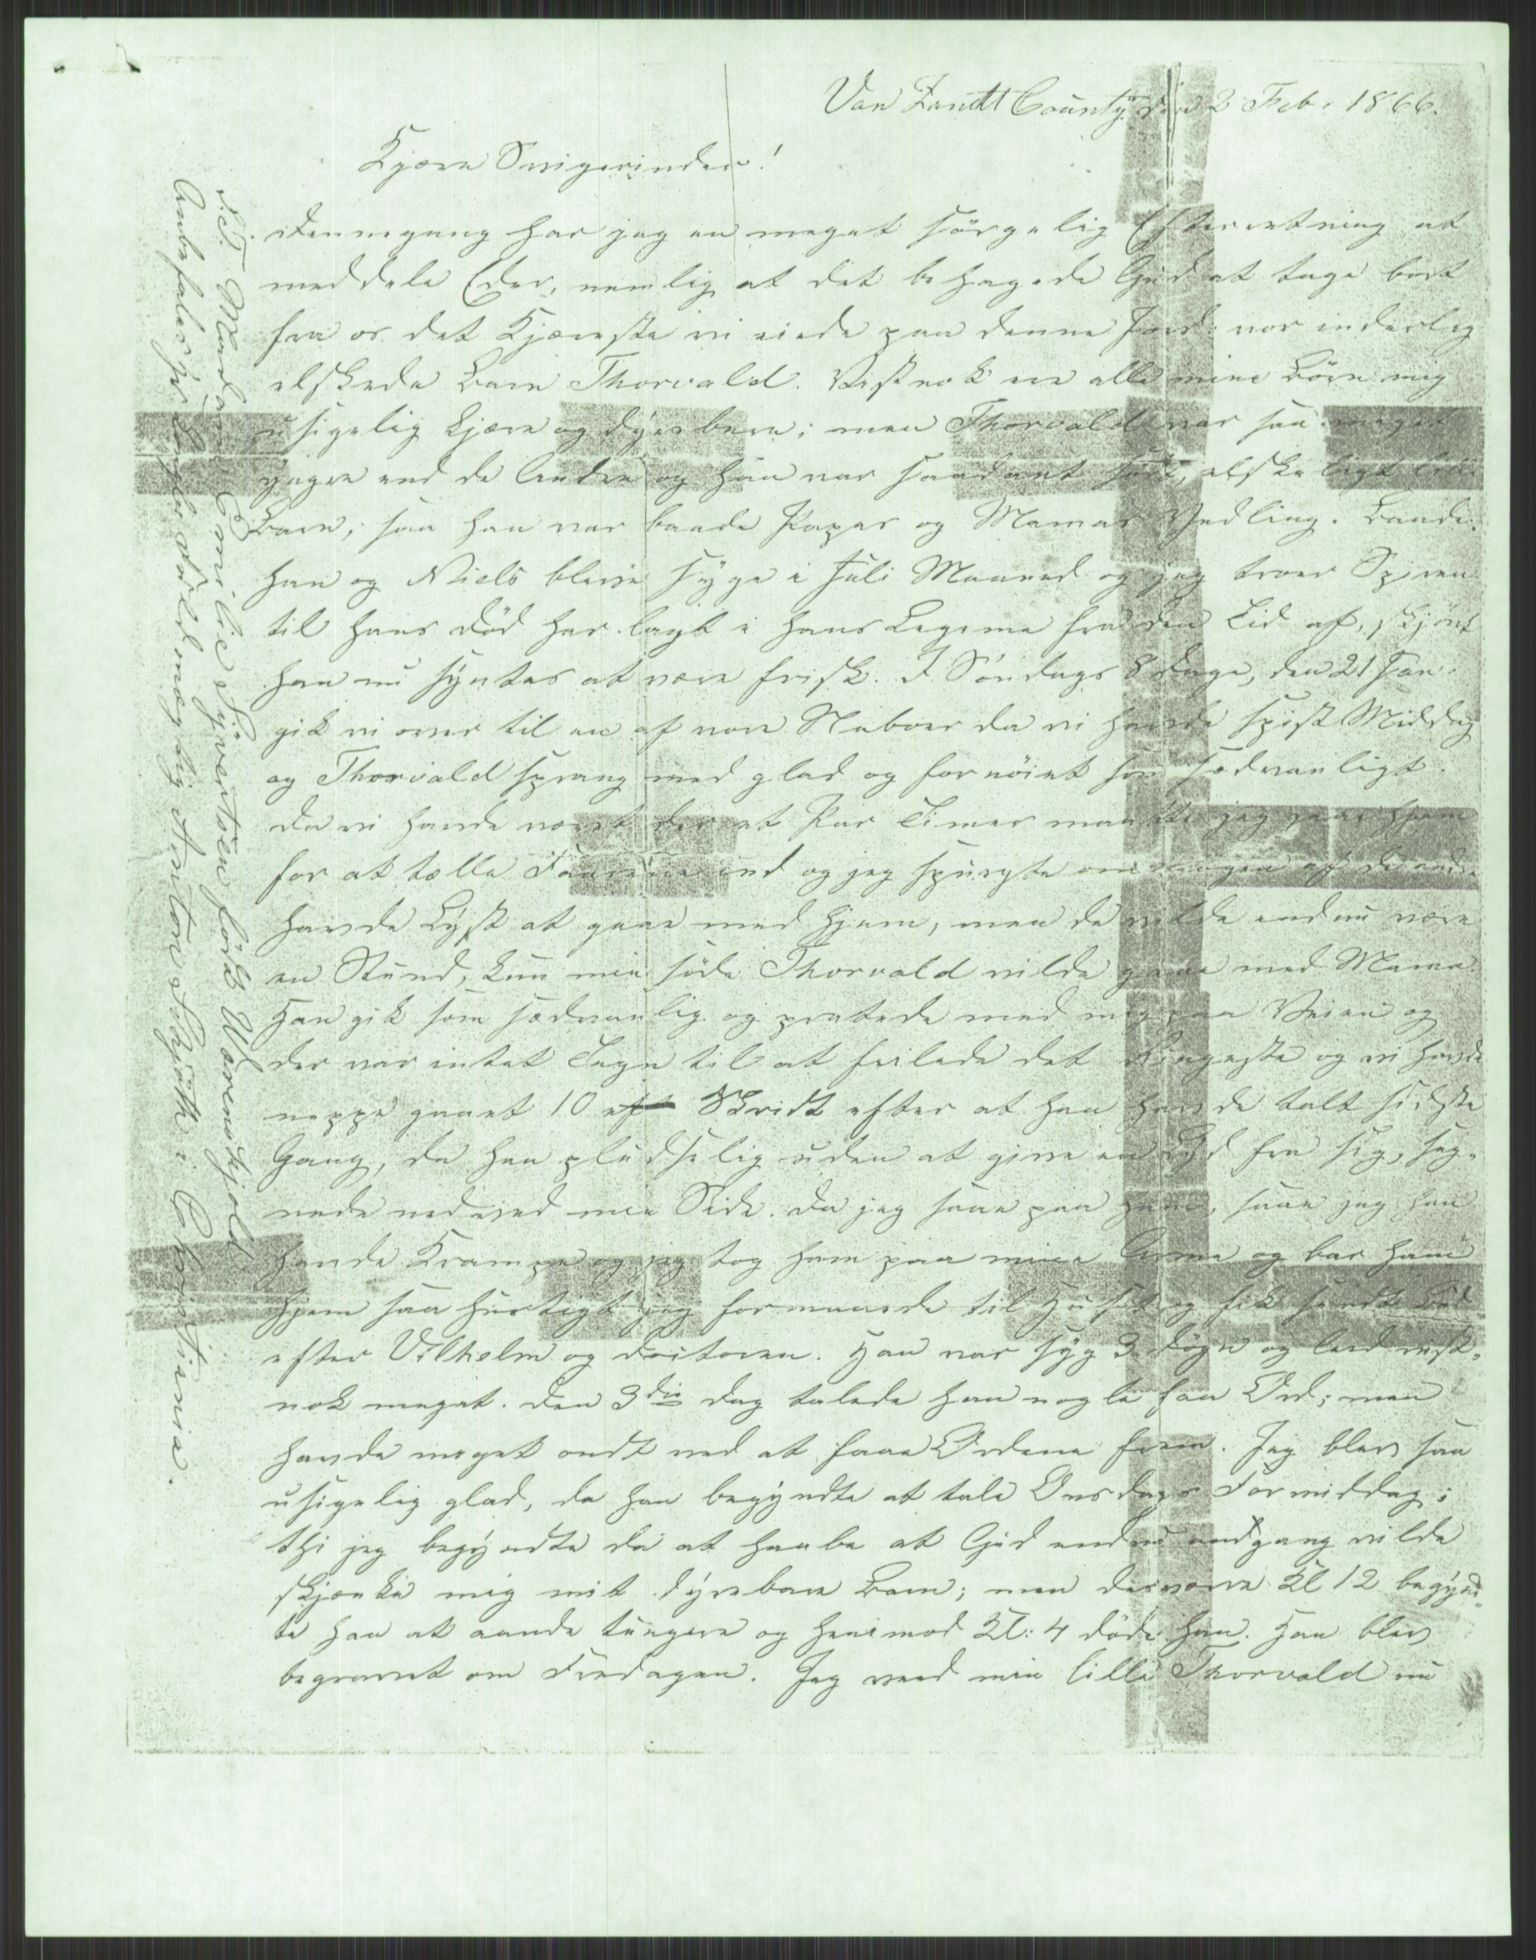 Van Zandt County den 2 Feb. 1866.
Kjære Svigerinder!
Dennegang har jeg en meget sörgelig Efterretning at
meddele Eder, nemlig at det behagede Gud at tage bort
fra os det Kjæreste vi eiede paa denne Jord: vor inderlig
elskede Barn Thorvald. Vistnok ere alle mine Börn mig
usigelig kjære og dyrebare; men Thorvald var saa meget
yngre end de Andre og han var saadant södt, elskeligt lille
Barn, saa han var baade Papas og Mamas Yndling. Baade
han og Niels bleve syge i Juli Maaned og jeg troer Spiren
til hans Död har lagt i hans Legeme fra den Tid af, skjönt
han nu syntes at være frisk. I Söndags 8 Dage, den 21 Jan.
gik vi over til en af vore Naboer da vi havde spist Middag
og Thorvald sprang med glad og fornöiet som sedvanligt.
Da vi havde været der et Par Timer maatte jeg gaae hjem
for at tælle Faarene ind og jeg spurgte om nogen af de andre
havde Lyst at gaae med hjem, men de vilde endnu være
en Stund, kun min söde Thorvald vilde gaae med Mama.
Han gik som sædvanlig og pratede med mig paa Veien og
der var intet Tegn til at feilede det Ringeste og vi havde
neppe gaaet 10 Skridt efter at han havde talt sidste
Gang, da han pludselig uden at give en Lyd fra sig, seg-
nede ned ved min Side. Da jeg saae paa ham, saae jeg han
havde Krampe og jeg tog ham paa mine Arme og bar ham
hjem saa hurtigt jeg formaaede til Huset og fik sendt Bud
efter Vilhelm og Doctoren. Han var syg 3 Dögn og leed vist-
nok meget. Den 3die Dag talede han nogle faa Ord; men
havde meget ondt ved at faae Ordene frem. Jeg blev saa
usigelig glad, da han begyndte at tale Onsdags Formiddag;
thi jeg begyndte da at haabe at Gud endnu engang vilde
skjænke mig mit dyrebare Barn; men desværre Kl 12 begynd-
te han at aande tungere og henimod Kl: 4 döde han. Han blev
begravet om Fredagen. Jeg veed min lille Thorvald nu
S.T. Madame Emilie Syvertsen födt Wærenskjold
Anbefales til Anton Skjöth i Christiania.